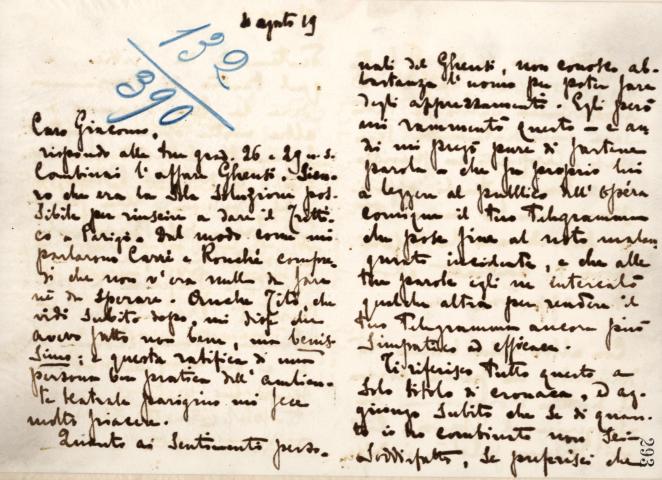 2 agosto 19
132
390
Caro Giacomo,
rispondo alle tue grad. 26 e 29 u.s.
Combinai l'affare Gheusi. Sicu-
ro che era la sola soluzione pos-
sibile per riuscire a dare il Tritti-
co a Parigi. Dal modo come mi
parlarono Carré e Rouché compre-
si che non v'era nulla da fare
né da sperare. Anche Tito, che
vidi subito dopo, mi disse che
avevo fatto non bene, ma benis-
simo; e questa ratifica di una
persona ben pratica dell'ambien-
te teatrale parigino mi fece
molto piacere.
Quanto ai sentimenti perso-
nali del Gheusi, non conosco ab-
bastanza l'uomo per poter fare
degli apprezzamenti. Egli però
mi rammentò questo - e an-
zi mi pregò pure di fartene
parola - che fu proprio lui
a leggere al pubblico dell'Opéra
comique il tuo telegramma
che pose fine al noto malau-
gurato incidente, e che alle
tue parole egli ne intercalò
qualche altra per rendere il
tuo telegramma ancora più
simpatico ed efficace.
Ti riferisco tutto questo a
solo titolo di cronaca, ed ag-
giungo subito che se di quan-
to io ho combinato non sei
soddisfatto, se preferisci che
293